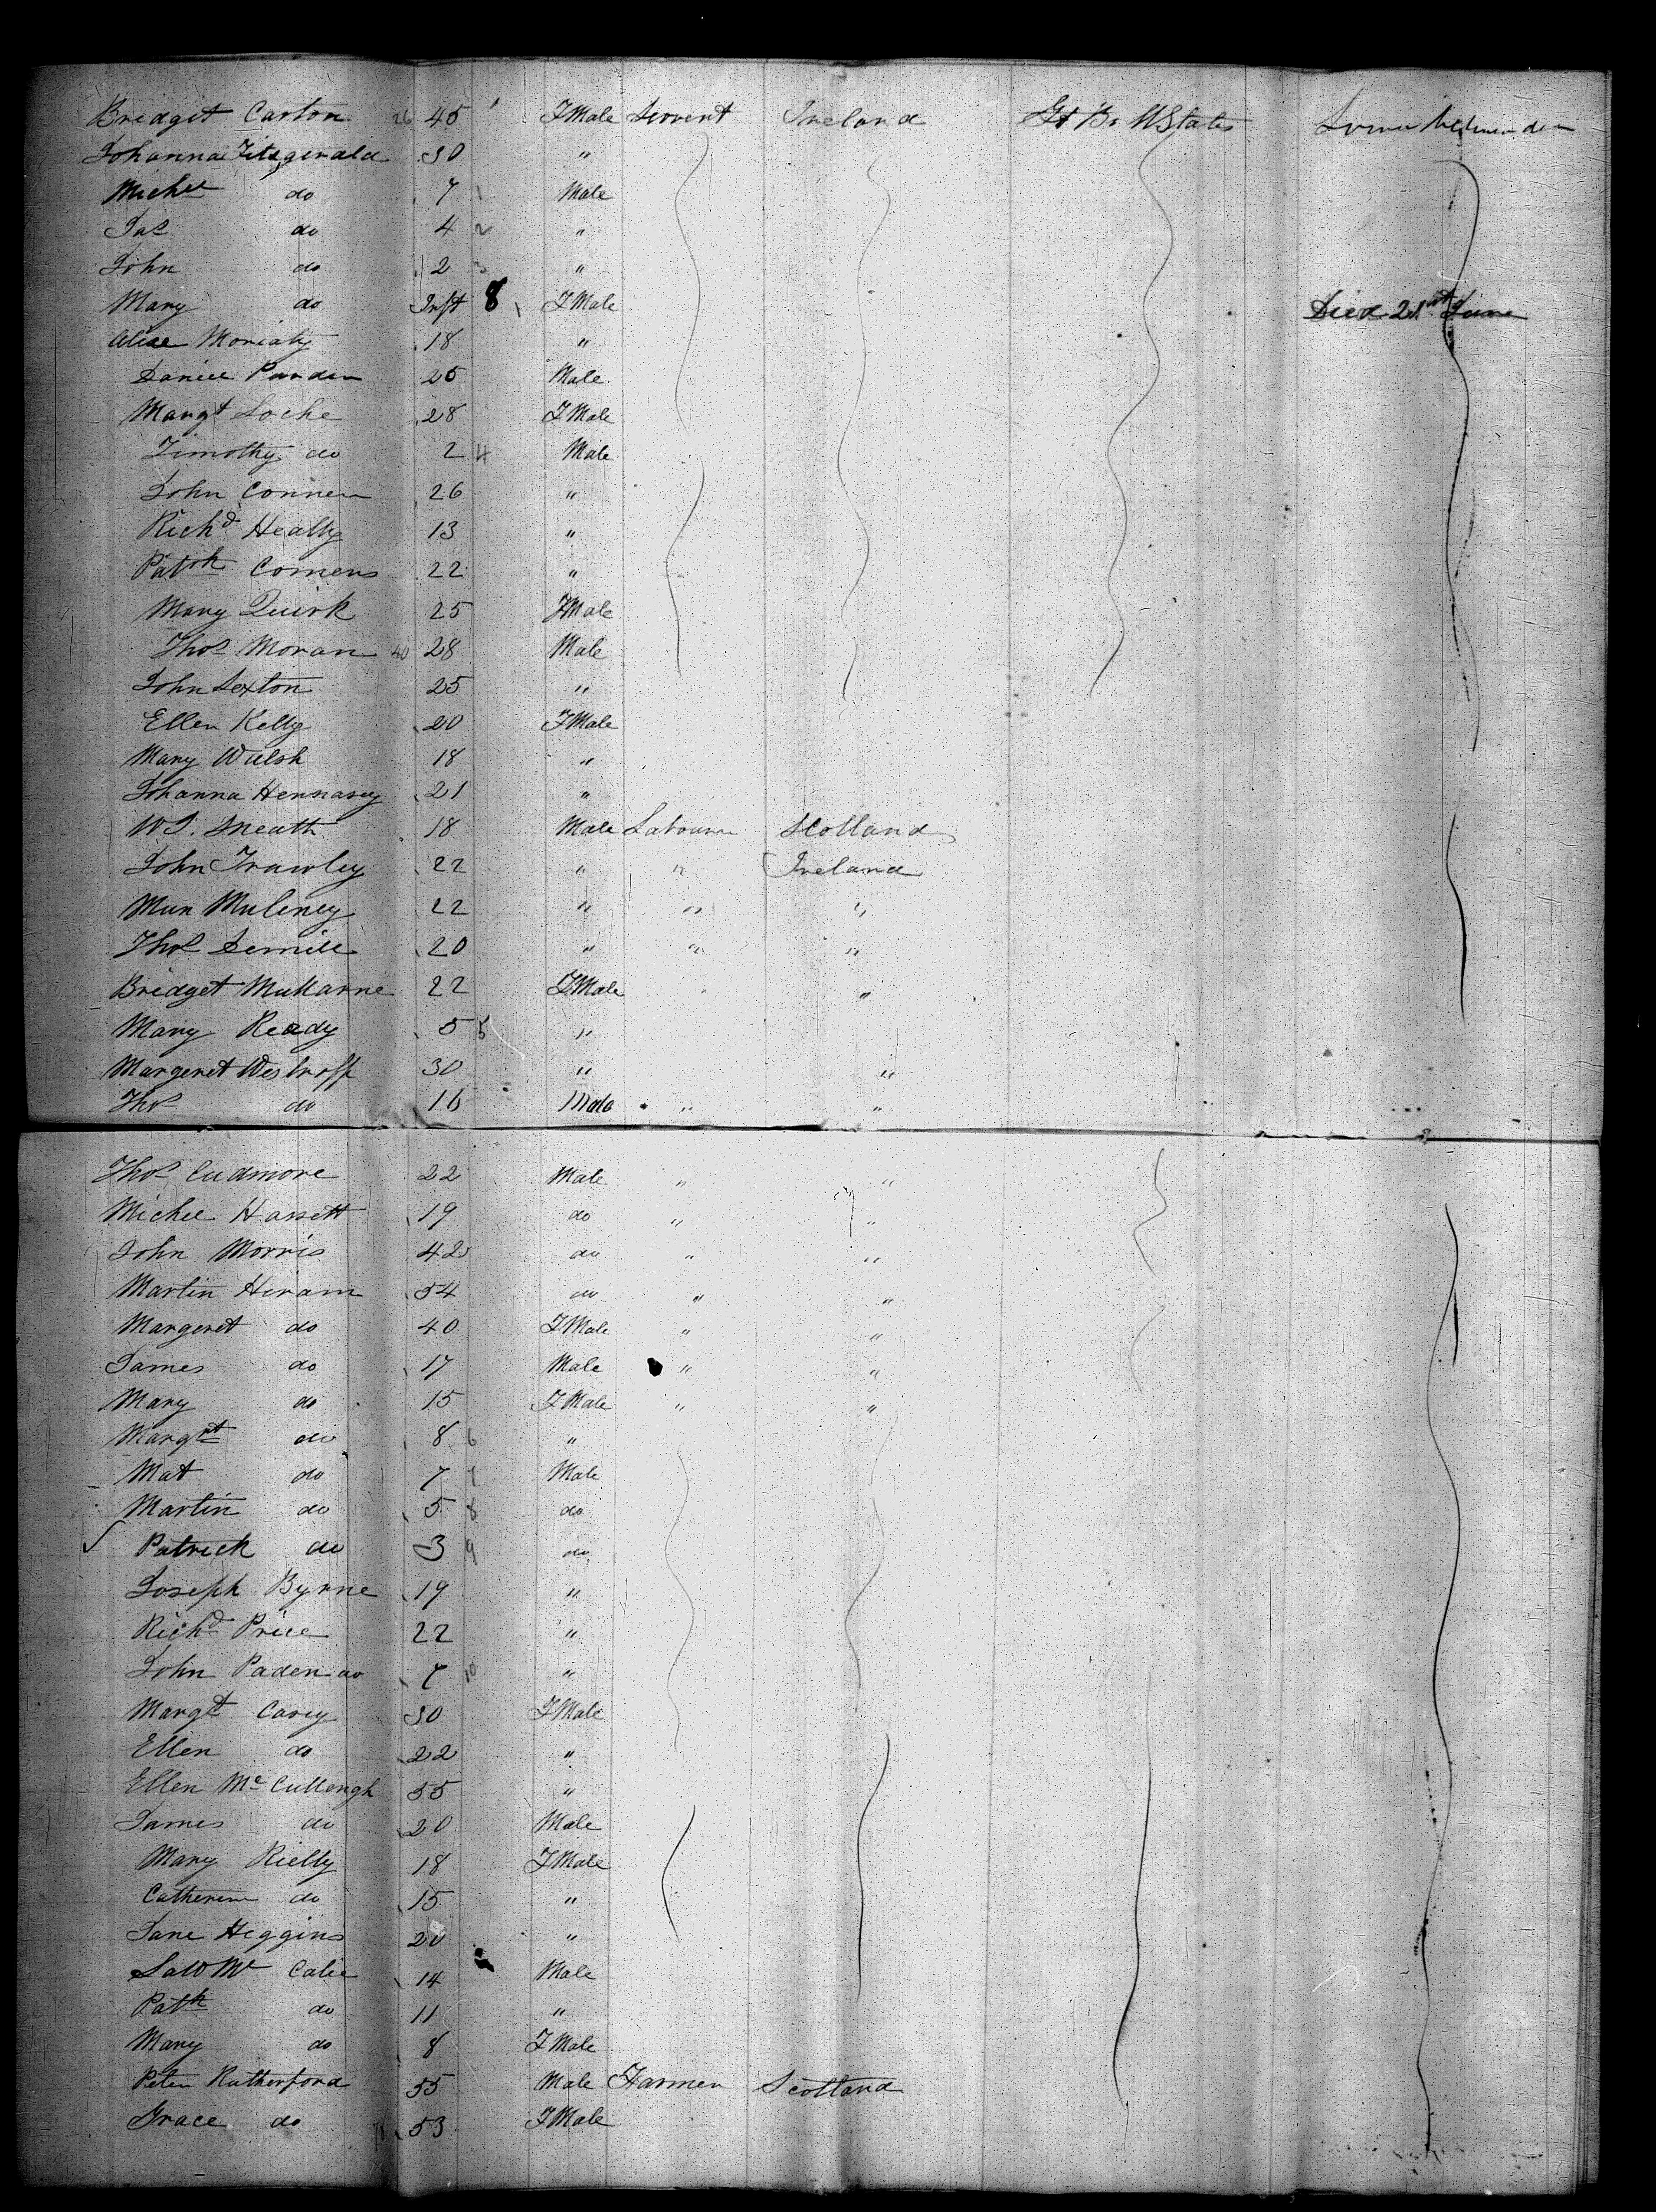 Bridget Carton 26 45 FMale Servent Ireland Gt Br UStates
Johanna Fitzgerald 30 "
Michll do 7 1 Male
Jas do 4 2 "
John do 2 3 "
Mary do Inft 8 FMale Died 21st June
Alice Moriaty 18 "
Daniel 25 Male
Margt Loche 28 FMale
Timothy do 2 4 Male
John Conner 26 "
Richd Heally 13 "
Patrk Comens 22 "
Mary Quirk 25 FMale
Thos Moran 40 28 Male
John Sexton 25 "
Ellen Kelly 20 FMale
Mary Walsh 18 "
Johanna Hennasey 21 "
W J. Meath 18 Male Labourer Scotland
John Frawley 22 " " Ireland
Mun Muliney 22 " " "
Thos 20 " " "
Bridget 22 FMale " "
Mary Ready 5 5 "
Margeret Westropp 30 " "
Thos do 16 Male " "
Thos Cudmore 22 Male " "
Michll Hassett 19 do " "
John Morris 42 do " "
Martin Hiram 54 do " "
Margeret do 40 FMale " "
James do 17 Male " "
Mary do 15 FMale " "
Margrt do 8 6 "
Mat do 7 7 Male
Martin do 5 8 do
Patrick do 3 9 do
Joseph Byrne 19 "
Richd Price 22 "
John Paden do 7 10 "
Margt Casey 30 FMale
Ellen do 22 "
Ellen Mc Cullengh 55 "
James do 20 Male
Mary Rielly 18 FMale
Catherin do 15 "
Jane Heggins 20 "
Law Mc Calie 14 Male
Patk do 11 "
Mary do 8 FMale
Peter Rutherford 55 Male Farmer Scotland
Grace do 53 FMale